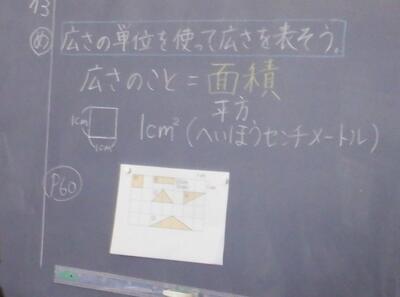 13
め 広さの単位を使って広さを表そう。
広さのこと=面積
1cm
1cm
1cm² (へいほうセンチメートル)
平方
P60